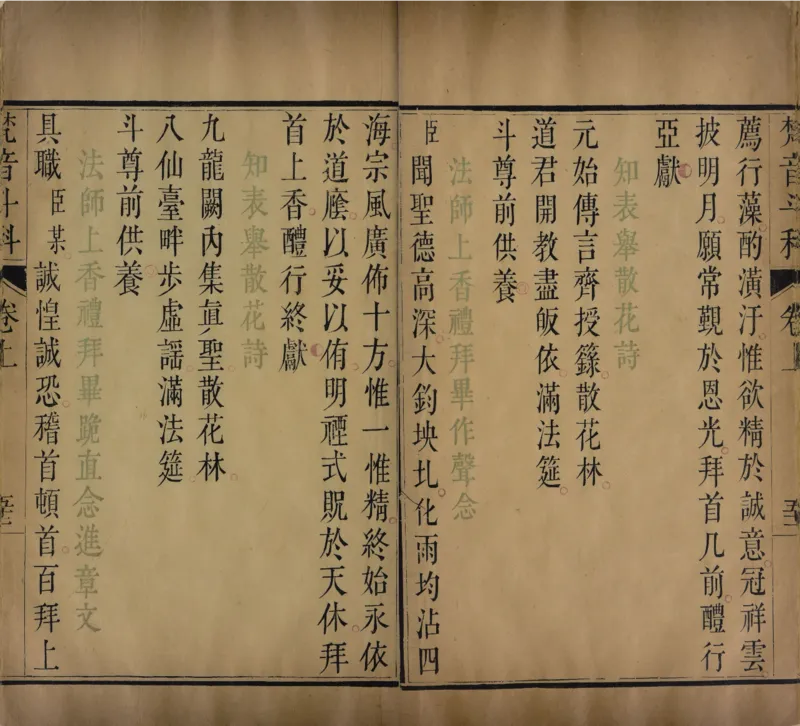 梵音斗科
卷上
薦行藻酌潢汙惟欲精於誠意冠祥雲
披明月願常覲於恩光拜首几前醴行
亞獻
知表舉散花詩
元始傳言齊授籙散花林
道君開教盡皈依滿法筵
斗尊前供養
法師上香禮拜畢作聲念
臣聞聖德高深大鈞坱圠化雨均沾四
海宗風廣佈十方惟一惟精終始永依
於道廕以妥以侑明禋式貺於天休拜
首上香醴行終獻
知表舉散花詩
九龍闕內集眞聖散花林
八仙臺畔步虛謡滿法筵
斗尊前供養
法師上香禮拜畢跪直念進章文
具職臣某誠惶誠恐稽首頓首百拜上
梵音斗科
卷上